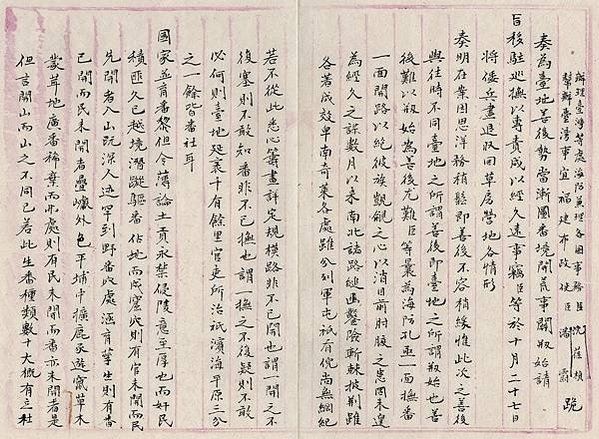 辦理臺灣等處海防兼理各國事務臣沈葆楨
幫辦臺灣事宜福建布政使臣潘霨 跪
奏為臺地善後勢當漸圖番境開荒事關創始請
旨移駐巡撫以專責成以經久遠事竊臣等於十月二十七日
將倭兵盡退收回草房營地各情形
奏明在案因思洋務稍鬆即善後不容稍緩惟此次之善後
與往時不同臺地之所謂善後即臺地之所謂創始也善
後難以創始為善後尤難臣等曩為海防孔亟一面撫番
一面開路以絕彼族覬覦之心以消目前肘腋之患固未遑
為經久之謀數月以來南北諸路縋幽鑿險斬棘披荊雖
各著成效卑南奇萊各處雖分列軍屯祇有倪尚無綱紀
若不從此悉心籌畫詳定規模路非不已開也謂一開之不
復塞則不敢知番非不已撫也謂一撫之不復疑則不敢
必何則臺地延袤千有餘里官吏所治祇濱海平原三分
之一餘皆番社耳
國家並育番黎但令薄輸土貢永禁侵陵意至厚也而奸民
積匪久已越境潛蹤驅番佔地而成窟穴則有官未開而民
先開者入山既深人迹罕到野番穴處涵育孳生則有番
已開而民未開者疊巘外包平埔中擴鹿豕遊竄草木
蒙茸地廣番稀棄而弗處則有民未開而番亦未開者是
但言開山而山之不同已若此生番種類數十大概有三牡